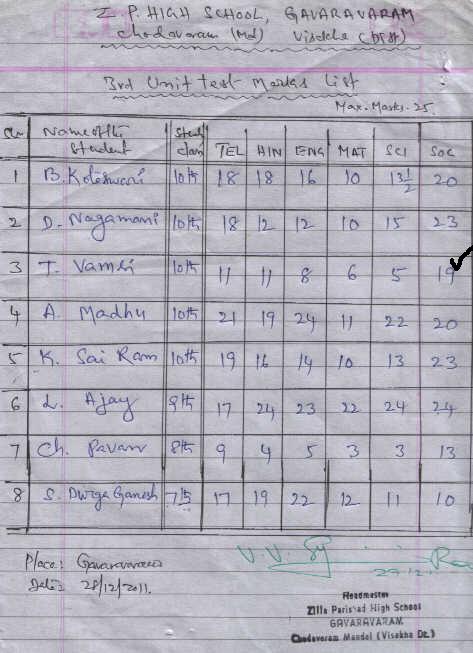 Z P. HIGH SCHOOL, GAVARAVARAM
Chodavaram (Md) Visakha (Dist)
3rd Unit test Marks List
Max. Marks- 25.
Name of the Student Stud class TEL HIN ENG MAT SCI SOC
1 B. Koteswari 10th 18 18 16 10 13½ 20
2 D. Nagamani 10th 18 12 12 10 15 23
3 T. Vamsi 10th 11 11 8 6 5 19
4 A. Madhu 10th 21 19 24 11 22 20
5 K. Sai Ram 10th 19 16 14 10 13 23
6 L. Ajay 9th 17 24 23 22 24 24
7 Ch. Pavan 8th 9 4 5 3 3 13
8 S. Durga Ganesh 7th 17 19 22 12 11 10
Place: Gavaravaram
Date: 28/12/2011.
Headmaster
Zilla Parishad High School
GAVARAVARAM
Chodavaram Mandal (Visakha Dt.)